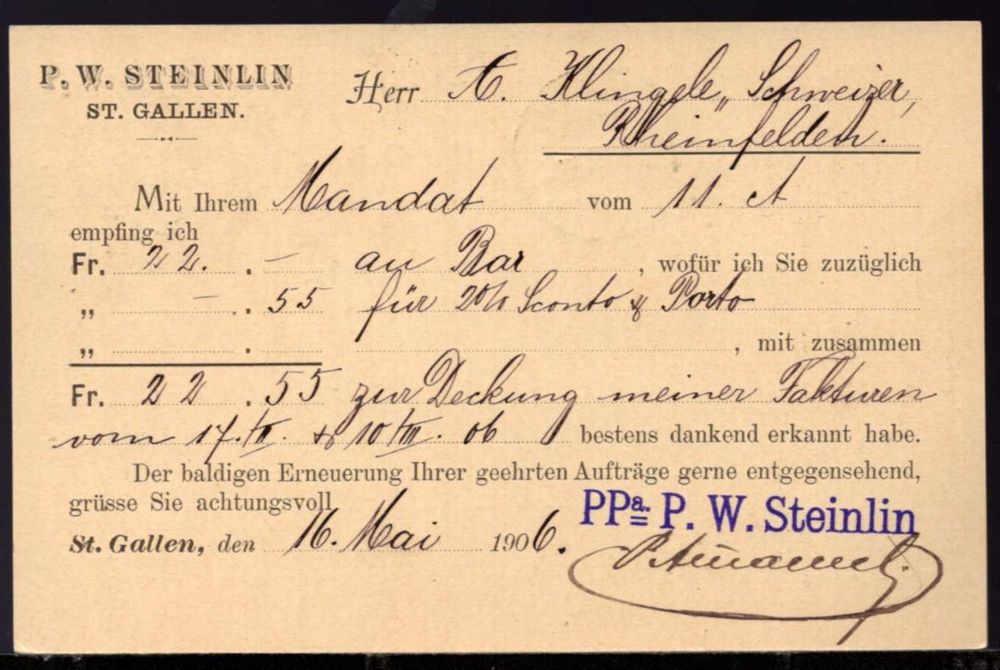 P. W. STEINLIN
ST. GALLEN.
Herr A. Klingele, Schweizer,
Rheinfelden.
Mit Ihrem Mandat vom 11. ct
empfing ich
Fr. 22. . — an Bar , wofür ich Sie zuzüglich
„ — . 55 für 2% Sconto & Porto
„ . , mit zusammen
Fr. 22 . 55 zur Deckung meiner Fakturen
vom 17./II. & 10/III. 06 bestens dankend erkannt habe.
Der baldigen Erneuerung Ihrer geehrten Aufträge gerne entgegensehend,
grüsse Sie achtungsvoll
PPa. P. W. Steinlin
St. Gallen, den 16. Mai 1906.